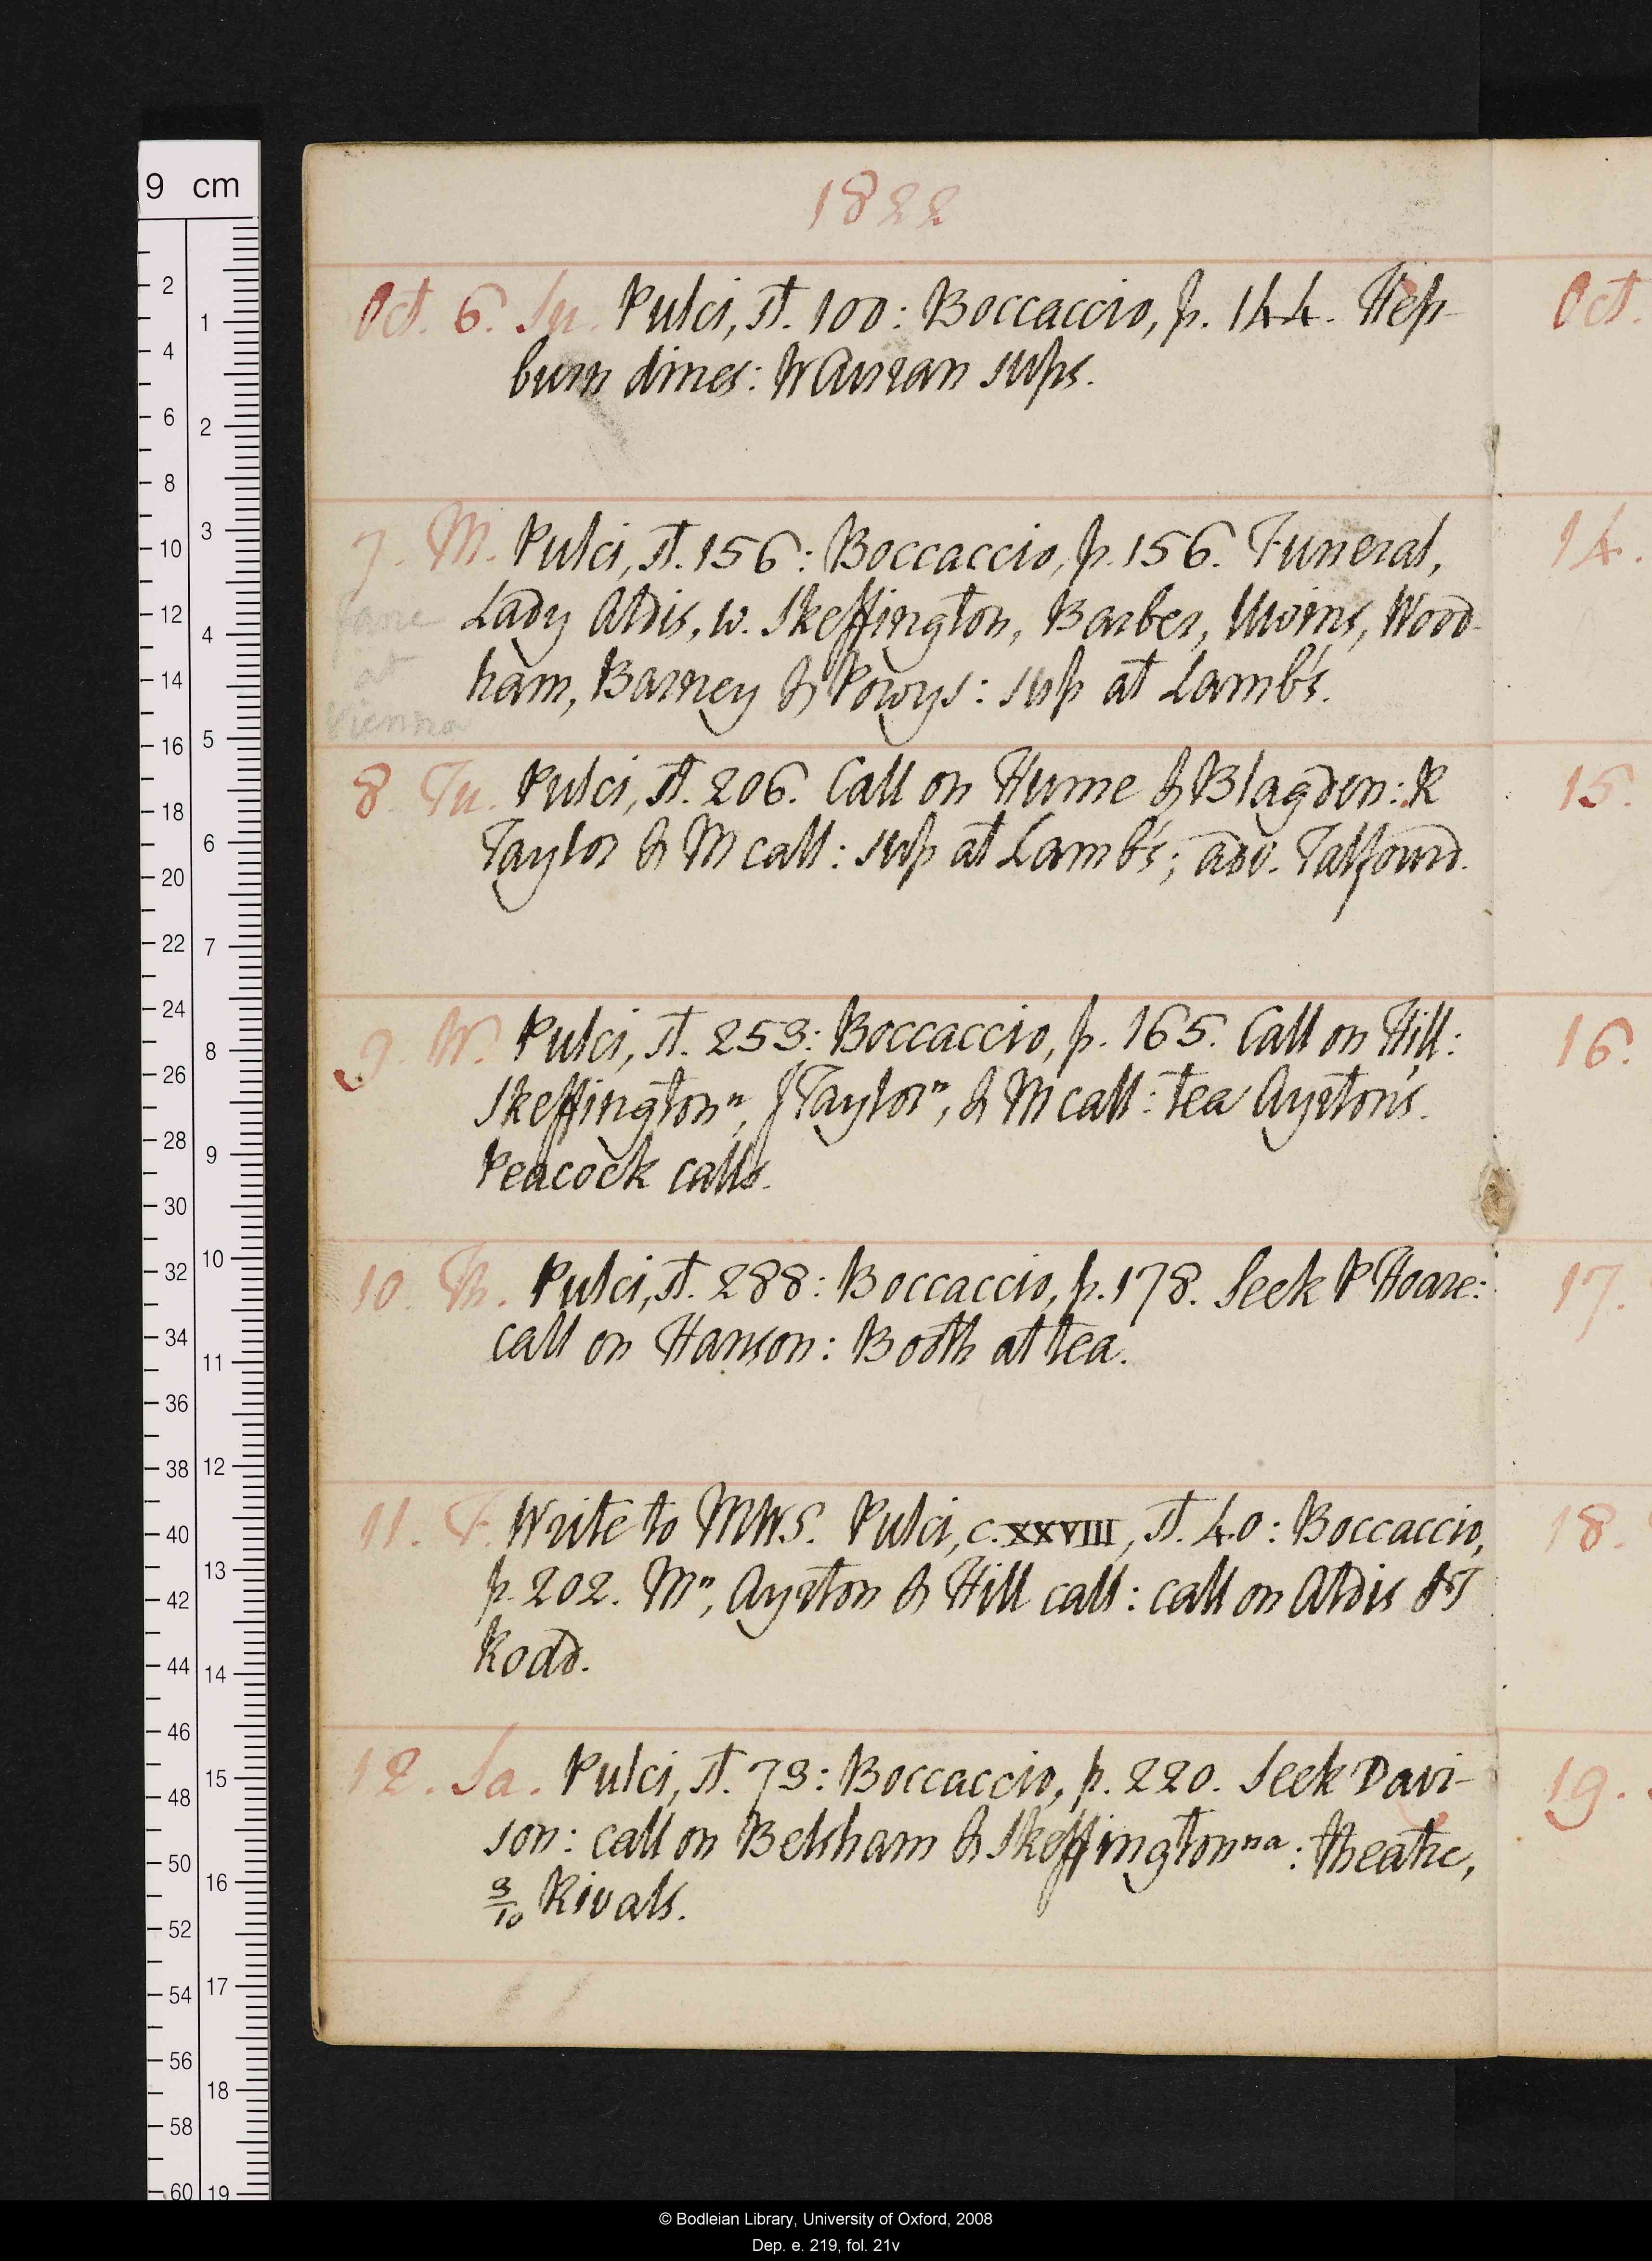 1822
Oct. 6. Su. Pulci, st. 100: Boccaccio, p. 144. Hep-
burn dines: W Curran sups.
7. M. Pulci, st. 156: Boccaccio, p. 156. Funeral,
Lady Aldis, w. Skeffington, Barber, Uwins, Wood-
ham, Barney & Powys: sup at Lamb's.
Jane
at
Vienna
8. Tu. Pulci, st. 206. Call on Hume & Blagden: R
Taylor & M call: sup at Lamb's; adv. Talfourd.
9. W. Pulci, st. 253: Boccaccio, p. 165. Call on Hill:
Skeffington n, J Taylor n, & M call: tea Ayrton's.
Peacock calls.
10. Th. Pulci, st. 288: Boccaccio, p. 178. Seek P Hoare:
call on Hanson: Booth at tea.
11. F. Write to MWS. Pulci, c. XXVIII, st. 40: Boccaccio,
p. 202. M n, Ayrton & Hill call: call on Aldis & T
Rodd.
12. Sa. Pulci, st. 73: Boccaccio, p. 220. Seek Davi-
son: call on Belsham & Skeffington na: theatre,
3/10 Rivals.
Oct.
14.
15.
16.
17.
18.
19.
9 cm
2
4
6
8
10
12
14
16
18
20
22
24
26
28
30
32
34
36
38
40
42
44
46
48
50
52
54
56
58
60
1
2
3
4
5
6
7
8
9
10
11
12
13
14
15
16
17
18
19
© Bodleian Library, University of Oxford, 2008
Dep. e. 219, fol. 21v